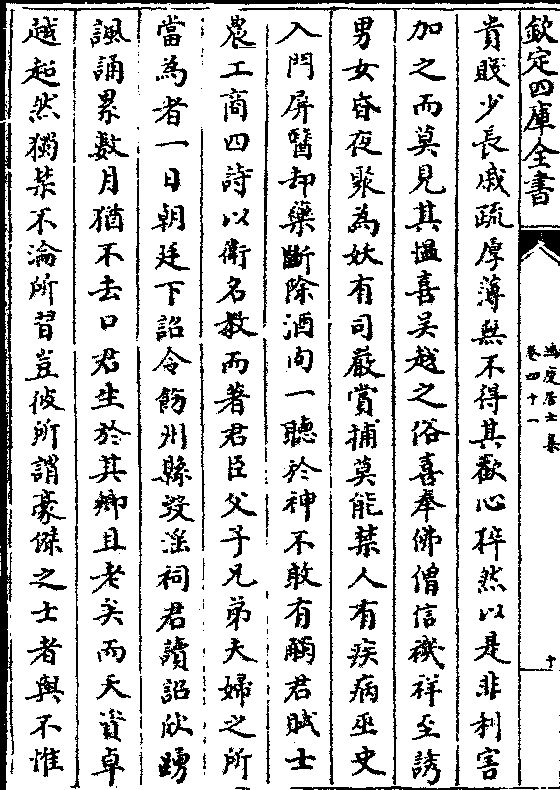 欽定四庫全書
鴻慶居士集
卷四十一
十
貴賤少長戚疏厚薄無不得其歡心猝然以是非利害
加之而莫見其愠喜吳越之俗喜奉佛僧信禨祥至誘
男女昏夜聚為妖有司嚴賞捕莫能禁人有疾病巫史
入門屏醫却藥斷除酒肉一聽於神不敢有觸君賦士
農工商四詩以衛名教而著君臣父子兄弟夫婦之所
當為者一日朝廷下詔令飭州縣毀淫祠君讀詔欣踴
諷誦累數月猶不去口君生於其鄉且老矣而天資卓
越超然獨禁不淪所習豈彼所謂豪傑之士者與不惟